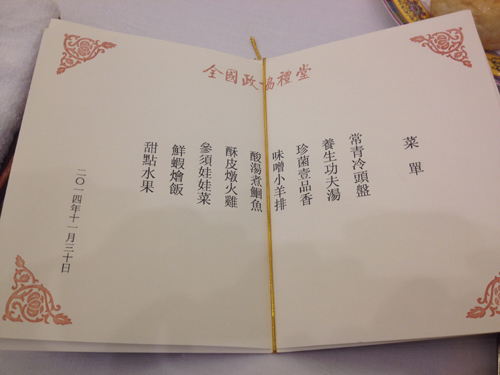 全國政協禮堂
菜單
常青冷頭盤
養生功夫湯
珍菌壹品香
味噌小羊排
酸湯煮鮰魚
酥皮燉火雞
參須娃娃菜
鮮蝦燴飯
甜點水果
二〇一四年十一月三十日